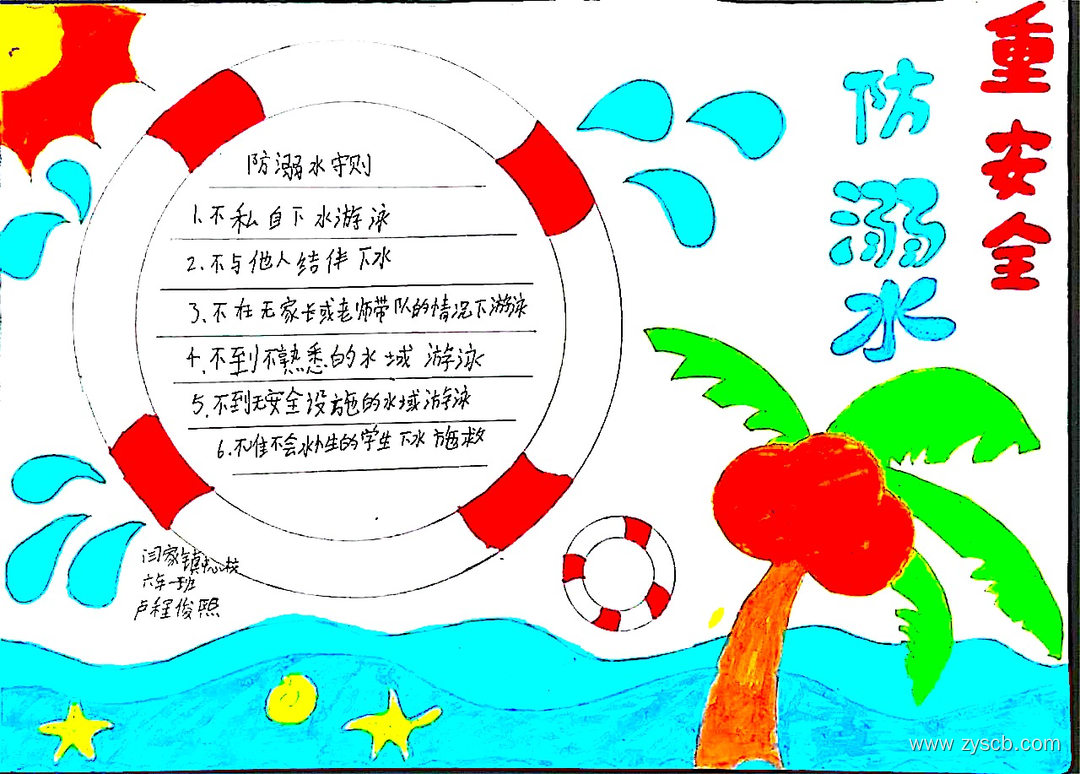 重安全
防溺水
防溺水守则
1.不私自下水游泳
2.不与他人结伴下水
3.不在无家长或老师带队的情况下游泳
4.不到不熟悉的水域游泳
5.不到无安全设施的水域游泳
6.不准不会水性的学生下水施救
闫家镇中心校
六年一班
卢程俊熙
www.zyscb.com